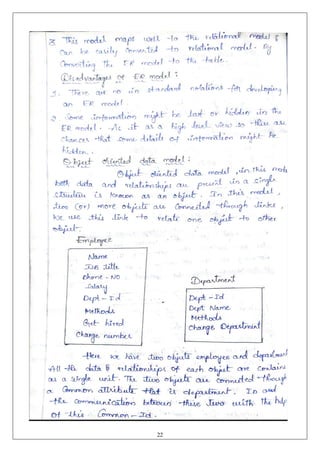 3. This model maps well to the relational model &
can be easily converted to relational model. By
Converting the ER model to the table.
Disadvantages of ER model :
1. There are no in standard notations for developing
an ER model
2. Some information might be lost or hidden in the
ER model. As it as a high level view so there are
chances that some details of information might be
hidden.
Object oriented data model :
Object oriented data model, in this mode
both data and relationships are present in a single
structure is known as an object. In this model,
two (or) more objects are connected through links,
we use this link to relate one object to other
object.
Employee
Name
Job title
Phone - No
Salary
Dept - Id
Methods
Get hired
Change number
Department
Dept - Id
Dept Name
Methods
Change Department
Here we have two objects employee and department
All the data & relationships of each object are contains
as a single unit. The two objects are connected through
a common attribute that is department. ID and
the communication between these two with the help
of this Common - Id.
22